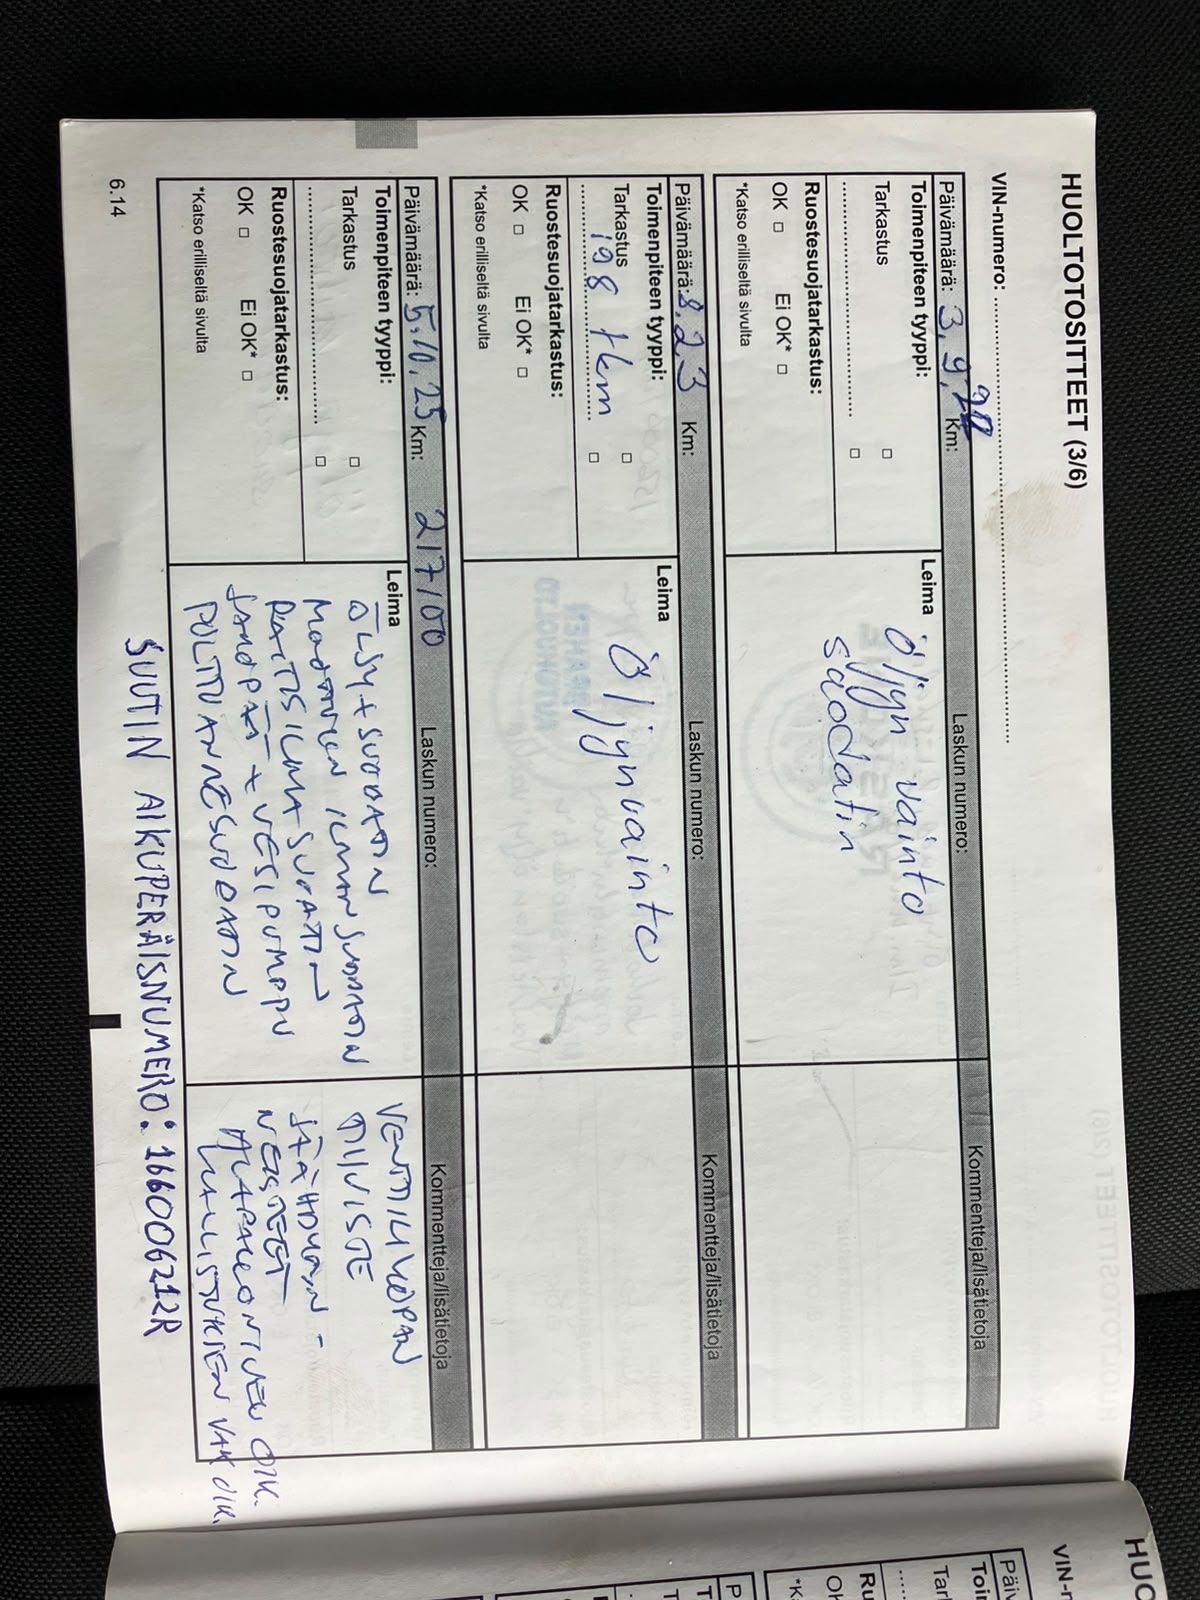 HUOLTOTOSITTEET (3/6)
VIN-numero:
Päivämäärä: 3.9. Km: Laskun numero: Kommentteja/lisätietoja
Toimenpiteen tyyppi:
Tarkastus
Ruostesuojatarkastus:
OK Ei OK*
*Katso erilliseltä sivulta
Leima
Öljyn vainto
saodatin
Päivämäärä: 8.23 Km: Laskun numero: Kommentteja/lisätietoja
Toimenpiteen tyyppi:
Tarkastus
198 tkm
Ruostesuojatarkastus:
OK Ei OK*
*Katso erilliseltä sivulta
Leima
Öljynvainto
Päivämäärä: 5.10.25 Km: 217100 Laskun numero: Kommentteja/lisätietoja
Toimenpiteen tyyppi:
Tarkastus
Ruostesuojatarkastus:
OK Ei OK*
*Katso erilliseltä sivulta
Leima
ÖLJY + SUODATIN
MOOTTORIN ILMANSUODATIN
RAITISILMASUODATIN
JAKOPÄÄ + VESIPUMPPU
POLTTOAINESUODATIN
VENTTIILIKOPAN
TIIVISTE
JÄÄHDYTIN-
NESTEET
ALAPALLONIVEL OIK.
KALLISTUKSEN VAK OIK.
6.14
SUUTIN ALKUPERÄISNUMERO: 166006212R
HUO
VIN-n
Päiv
Toim
Tark
Ru
OK